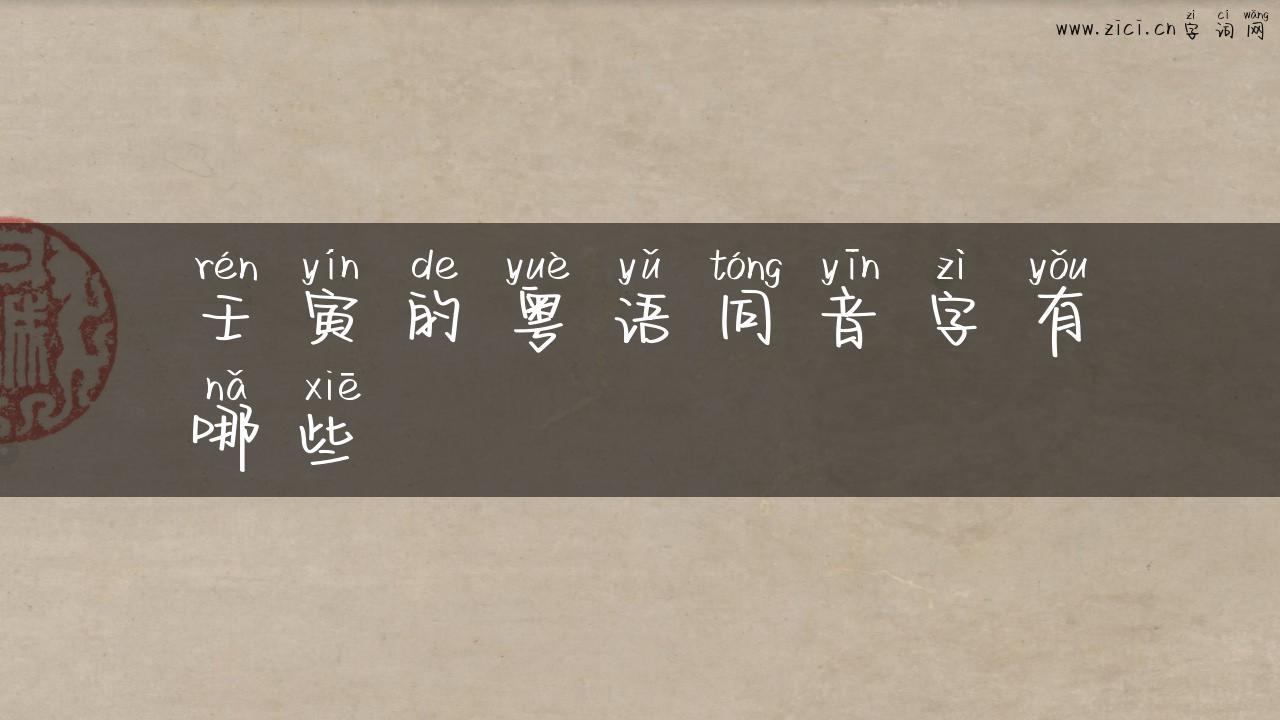 zì cí wǎng
www.zici.cn 字词网
rén yín de yuè yǔ tóng yīn zì yǒu
壬寅的粤语同音字有
nǎ xiē
哪些